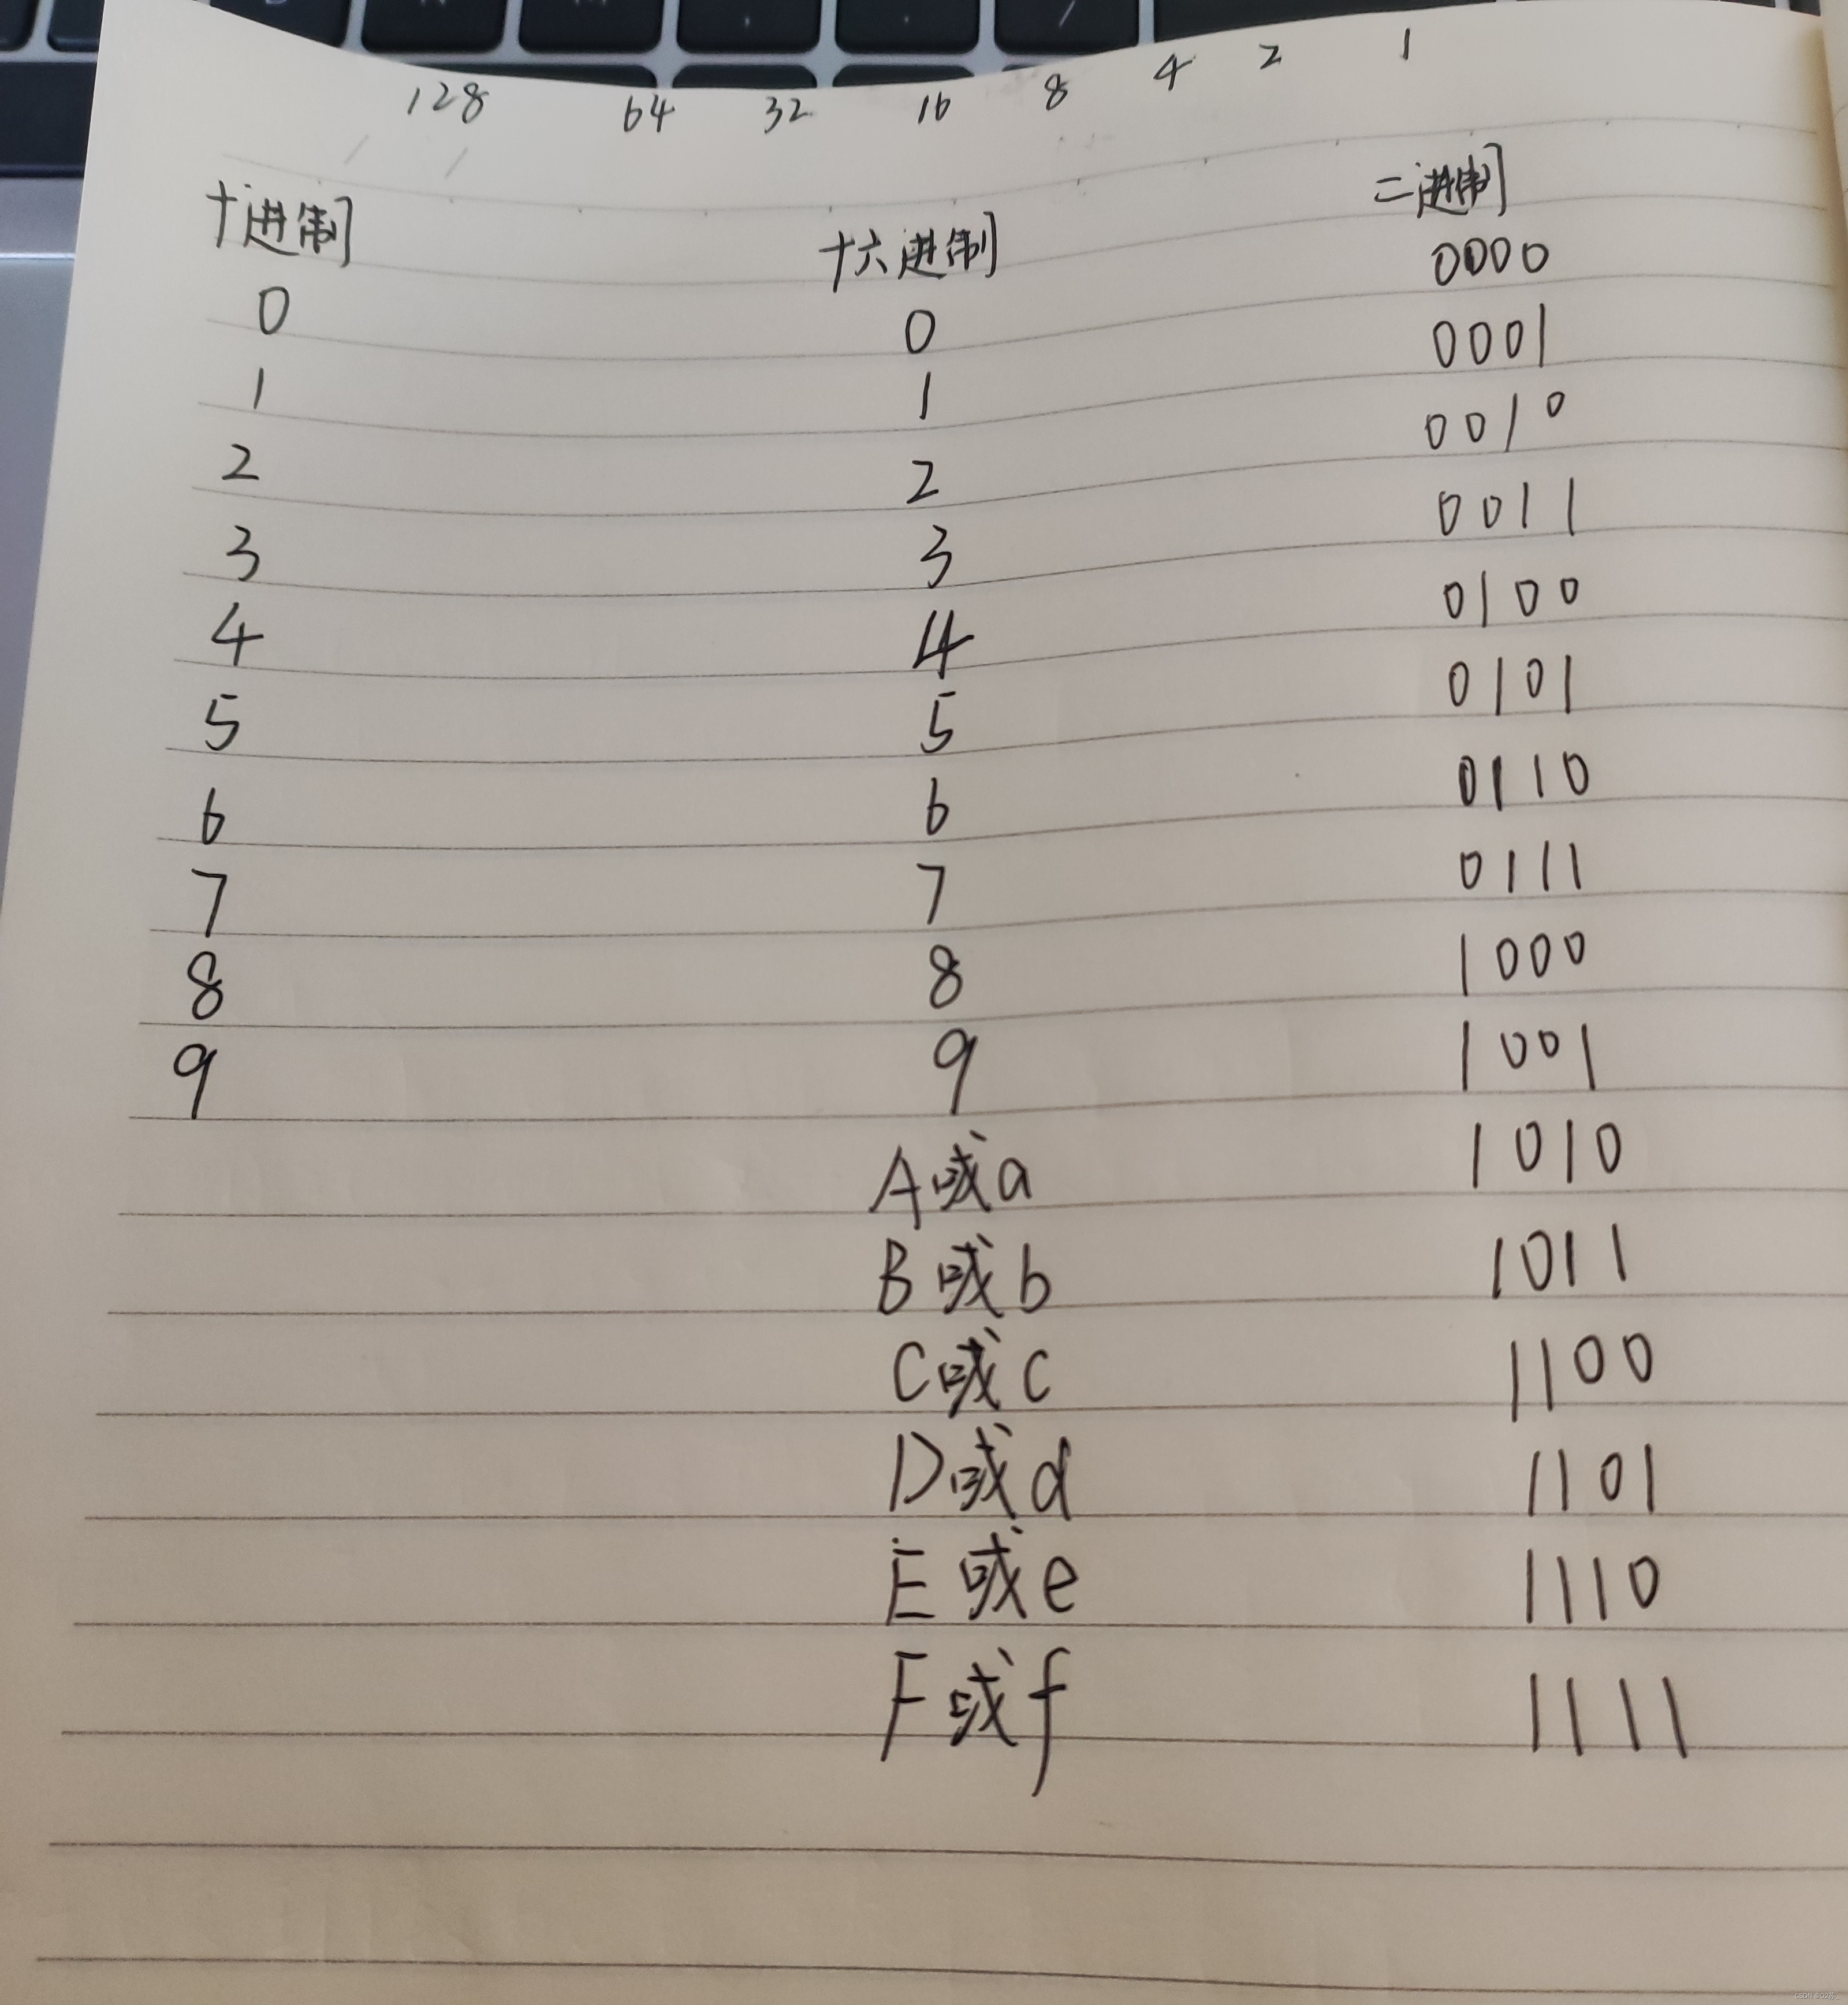 128 64 32 16 8 4 2 1
十进制 十六进制 二进制
0 0 0000
1 1 0001
2 2 0010
3 3 0011
4 4 0100
5 5 0101
6 6 0110
7 7 0111
8 8 1000
9 9 1001
A或a 1010
B或b 1011
C或c 1100
D或d 1101
E或e 1110
F或f 1111